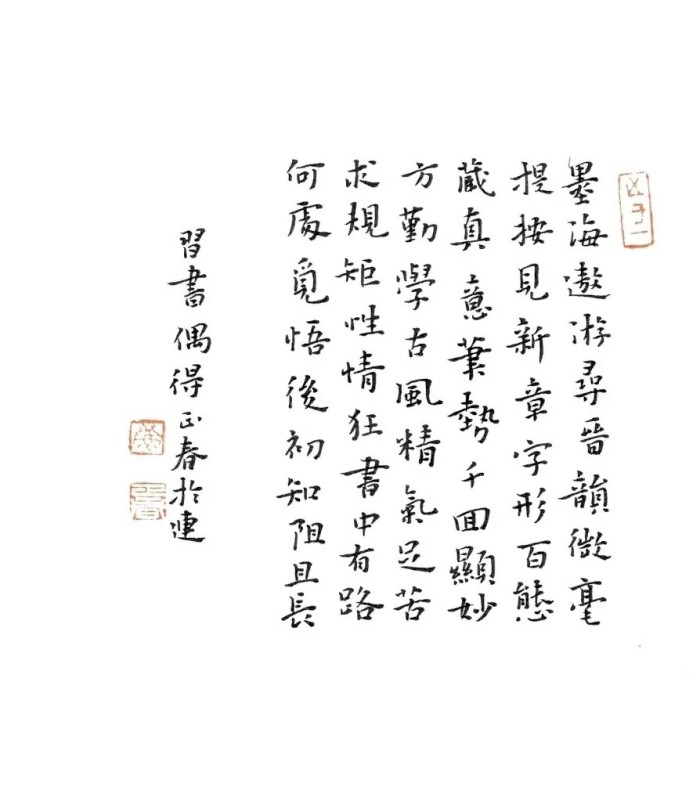 墨海遨游尋晉韻微毫
提按見新章字形百態
蔵真意筆勢千回顯妙
方勤學古風精氣足苦
求規矩性情狂書中有路
何處覓悟後初知阻且長
習書偶得正春於連